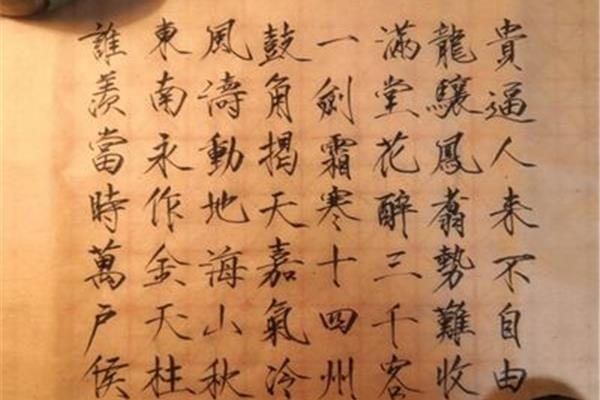 貴逼人来不自由
龍驤鳳翥勢難收
滿堂花醉三千客
一劍霜寒十四州
鼓角揭天嘉氣冷
風濤動地海山秋
東南永作金天柱
誰羨當時萬戶侯